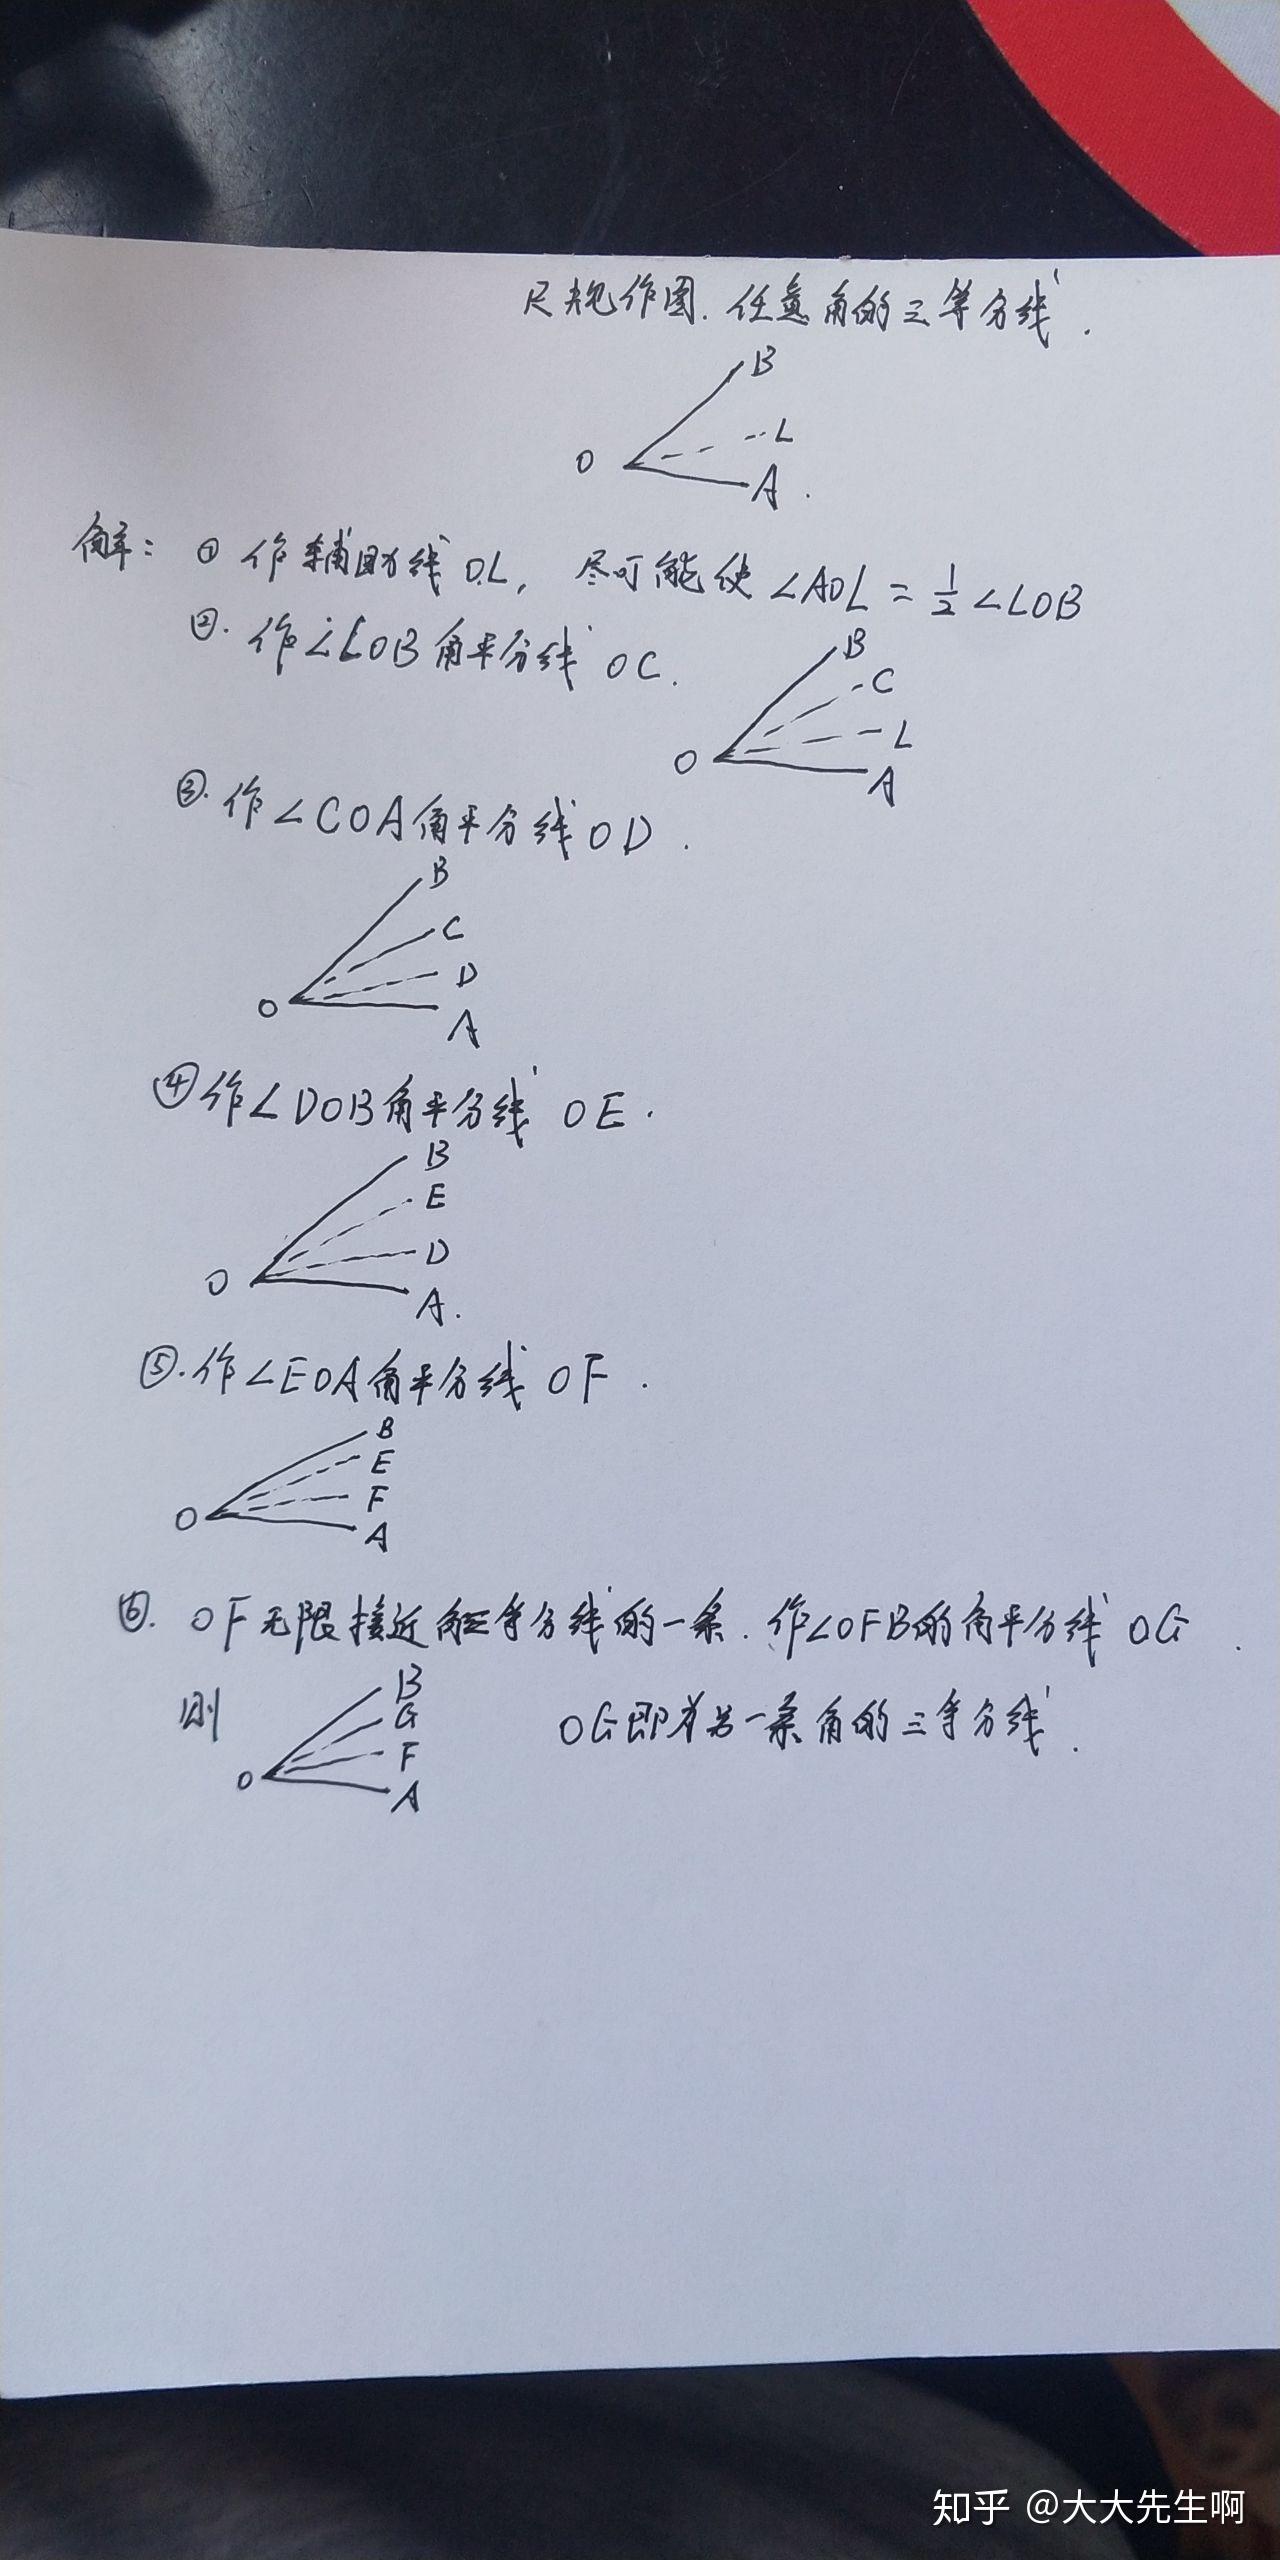 尺规作图.任意角的三等分线.
B
L
O
A.
解: ① 作辅助线OL, 尽可能使∠AOL = 1/2 ∠LOB
②. 作∠LOB角平分线 OC.
B
C
L
O
A
③. 作∠COA角平分线OD.
B
C
D
O
A
④作∠DOB角平分线 OE.
B
E
D
O
A.
⑤.作∠EOA角平分线 OF.
B
E
F
O
A
⑥. OF无限接近角三等分线的一条.作∠OFB的角平分线 OG.
则
B
G
F
O
A
OG即为另一条角的三等分线.
知乎 @大大先生啊